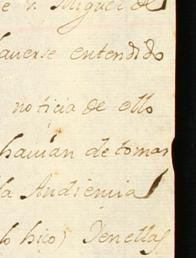 e V. Miguel de
haverse entendido
noticia de ello
havian de tomar
la Audiencia
lo hizo) Denellas